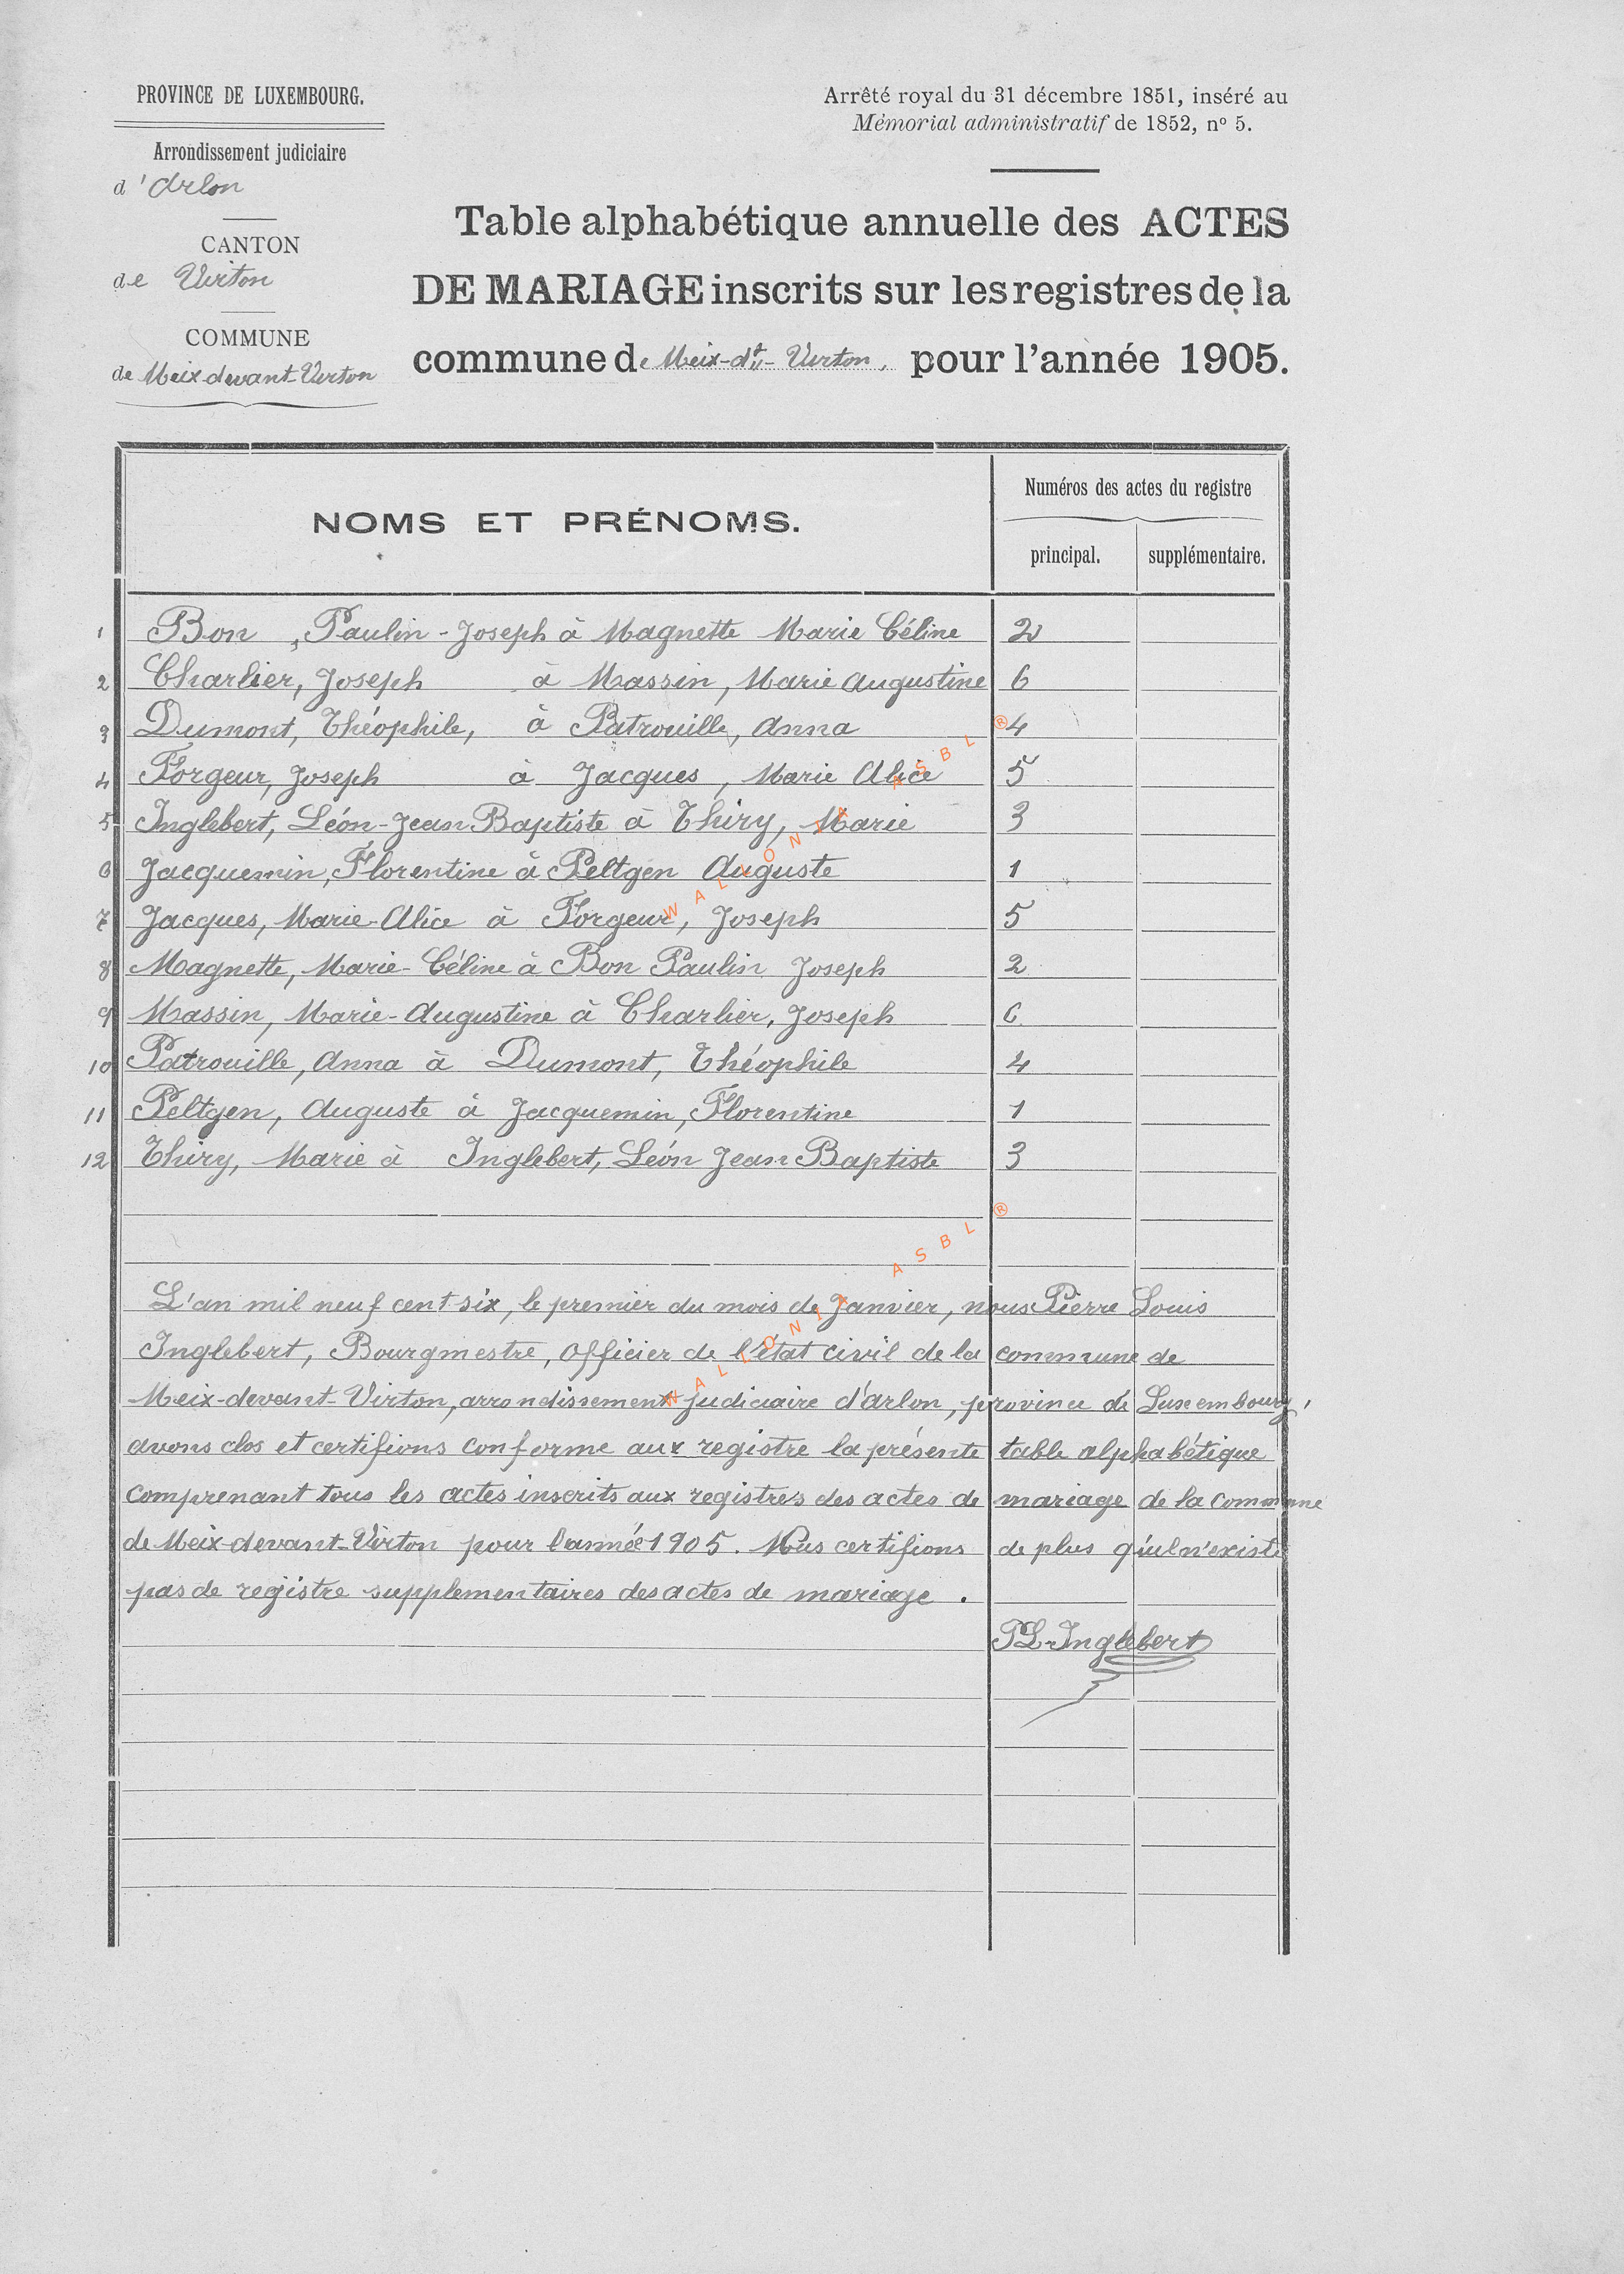 PROVINCE DE LUXEMBOURG.
Arrondissement judiciaire
d'Arlon
CANTON
de Virton
COMMUNE
de Meix devant-Virton
Arrêté royal du 31 décembre 1851, inséré au
Mémorial administratif de 1852, nº 5.
Table alphabétique annuelle des ACTES
DE MARIAGE inscrits sur les registres de la
commune de Meix-dt-Virton, pour l'année 1905.
NOMS ET PRÉNOMS.
Numéros des actes du registre
principal. supplémentaire.
1 Bon, Paulin-Joseph à Magnette Marie Céline 2
2 Charlier, Joseph à Massin, Marie Augustine 6
3 Dumont, Théophile, à Patrouille, Anna 4
4 Forgeur, Joseph à Jacques, Marie Alice 5
5 Inglebert, Léon-Jean Baptiste à Thiry, Marie 3
6 Jacquemin, Florentine à Peltgen Auguste 1
7 Jacques, Marie-Alice à Forgeur, Joseph 5
8 Magnette, Marie-Céline à Bon Paulin Joseph 2
9 Massin, Marie-Augustine à Charlier, Joseph 6
10 Patrouille, Anna à Dumont, Théophile 4
11 Peltgen, Auguste à Jacquemin, Florentine 1
12 Thiry, Marie à Inglebert, Léon Jean Baptiste 3
L'an mil neuf cent six, le premier du mois de Janvier, nous Pierre Louis
Inglebert, Bourgmestre, officier de l'état civil de la commune de
Meix-devant-Virton, arrondissement judiciaire d'arlon, province de Luxembourg,
avons clos et certifions conforme aux registre la présente table alphabétique
comprenant tous les actes inscrits aux registres des actes de mariage de la commune
de Meix-devant-Virton pour l'année 1905. Nous certifions de plus qu'il n'existe
pas de registre supplementaires des actes de mariage.
PL Inglebert
WALLONIA ASBL ®
WALLONIA ASBL ®